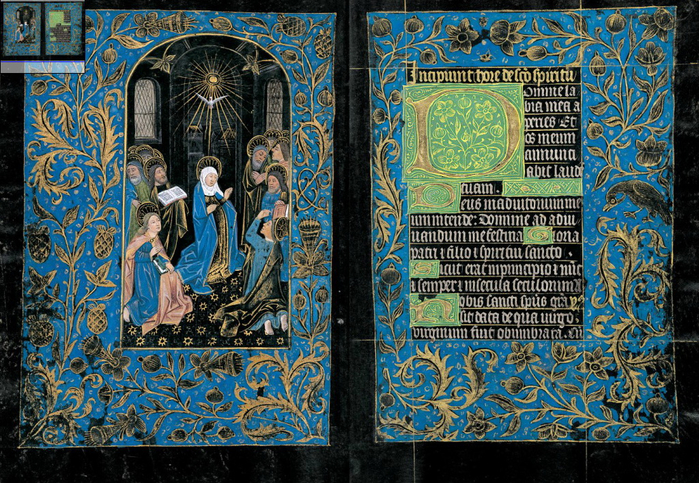 Incipiunt hore de sco spiritu
Domine la
bia mea a
peries Et
os meum
annunci
abit laud
tuam.
Deus in adiutorium me
um intende: Domine ad adiu
uandum me festina Gloria
patri et filio et spiritui sancto
Sicut erat in principio et nūc
et semper et in secula seculorum A
Nobis sancti spūs gr̄a
sic data de qua uirgo
uirginum fuit obumbrata. Cū